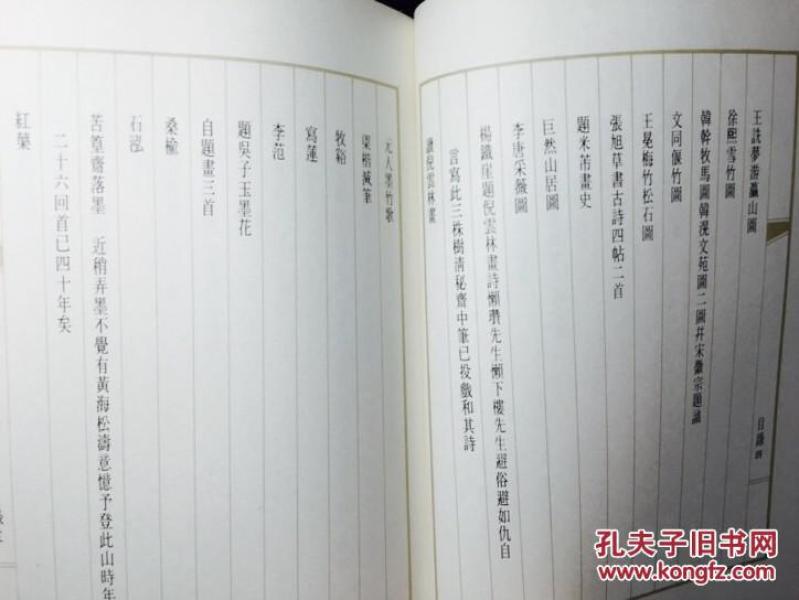 王詵夢游瀛山圖
徐熙雪竹圖
韓幹牧馬圖韓滉文苑圖二圖幷宋徽宗題識
文同偃竹圖
王冕梅竹松石圖
張旭草書古詩四帖二首
題米芾畫史
巨然山居圖
李唐采薇圖
楊鐵星題倪雲林畫詩懶瓚先生懶下樓先生避俗避如仇自
言寫此三株樹清秘齋中筆已投戲和其詩
倪雲林畫
目錄 四
元人墨竹歌
梁楷減筆
牧谿
寫蓮
李范
題吳子玉墨花
自題畫三首
桑榆
石泓
苦篁齋落墨 近稍弄墨不覺有黃海松濤意憶予登此山時年
二十六回首已四十年矣
紅葉
孔夫子旧书网
www.kongfz.com